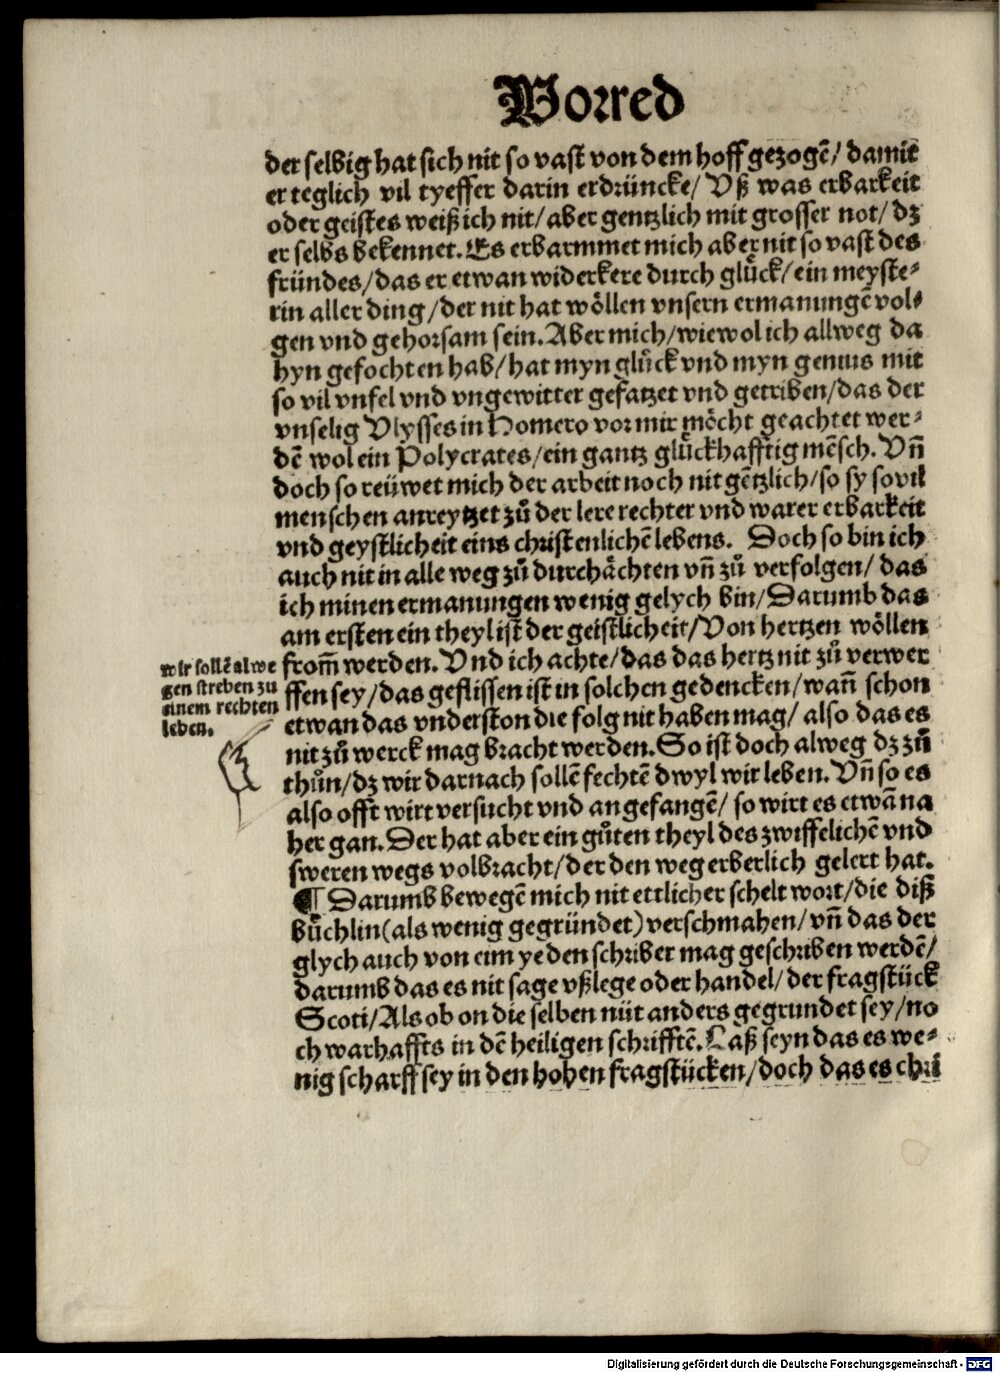 Vorred
der selbig hat sich nit so vast von dem hoff gezogē/ damit
er teglich vil tyeffer darin erdrüncke/ Vß was erbarkeit
oder geistes weiß ich nit/ aber gentzlich mit grosser not/ dz
er selbs bekennet. Es erbarmmet mich aber nit so vast des
fründes/ das er etwan widerkere durch glůck/ ein meyste⸗
rin aller ding/ der nit hat wöllen vnsern ermanungē vol⸗
gen vnd gehorsam sein. Aber mich/ wiewol ich allweg da
hyn gefochten hab/ hat myn glůck vnd myn genius mit
so vil vnfel vnd vngewitter gefatzet vnd getriben/ das der
vnselig Vlysses in Homero vor mir möcht geachtet wer⸗
dē wol ein Polycrates/ ein gantz glückhafftig mēsch. Vñ
doch so reüwet mich der arbeit noch nit gētzlich/ so sy sovil
menschen anreytzet zů der lere rechter vnd warer erbarkeit
vnd geystlicheit eins christenlichē lebens. Doch so bin ich
auch nit in alle weg zů durchåchten vñ zů verfolgen/ das
ich minen ermanungen wenig gelych bin/ Darumb das
am ersten ein theyl ist der geistlicheit/ Von hertzen wöllen
from̄ werden. Vnd ich achte/ das das hertz nit zů verwer
ffen sey/ das geflissen ist in solchen gedencken/ wañ schon
etwan das vnderston die folg nit haben mag/ also das es
nit zů werck mag bracht werden. So ist doch alweg dz zů
thůn/ dz wir darnach sollē fechtē dwyl wir leben. Vñ so es
also offt wirt versucht vnd angefangē/ so wirt es etwā na
her gan. Der hat aber ein gůten theyl des zwiffelichē vnd
sweren wegs volbracht/ der den weg erberlich gelert hat.
¶ Darumb bewegē mich nit ettlicher schelt wort/ die diß
bůchlin (als wenig gegründet) verschmahen/ vñ das der
glych auch von eim yeden schriber mag geschriben werdē/
darumb das es nit sage vßlege oder handel/ der fragstück
Scoti/ Als ob on die selben nüt anders gegrundet sey/ no
ch warhaffts in dē heiligen schrifftē. Laß seyn das es we⸗
nig scharff sey in den hohen fragstücken/ doch das es chri
wir sollē alwe
gen streben zu
einem rechten
leben.
Digitalisierung gefördert durch die Deutsche Forschungsgemeinschaft - DFG